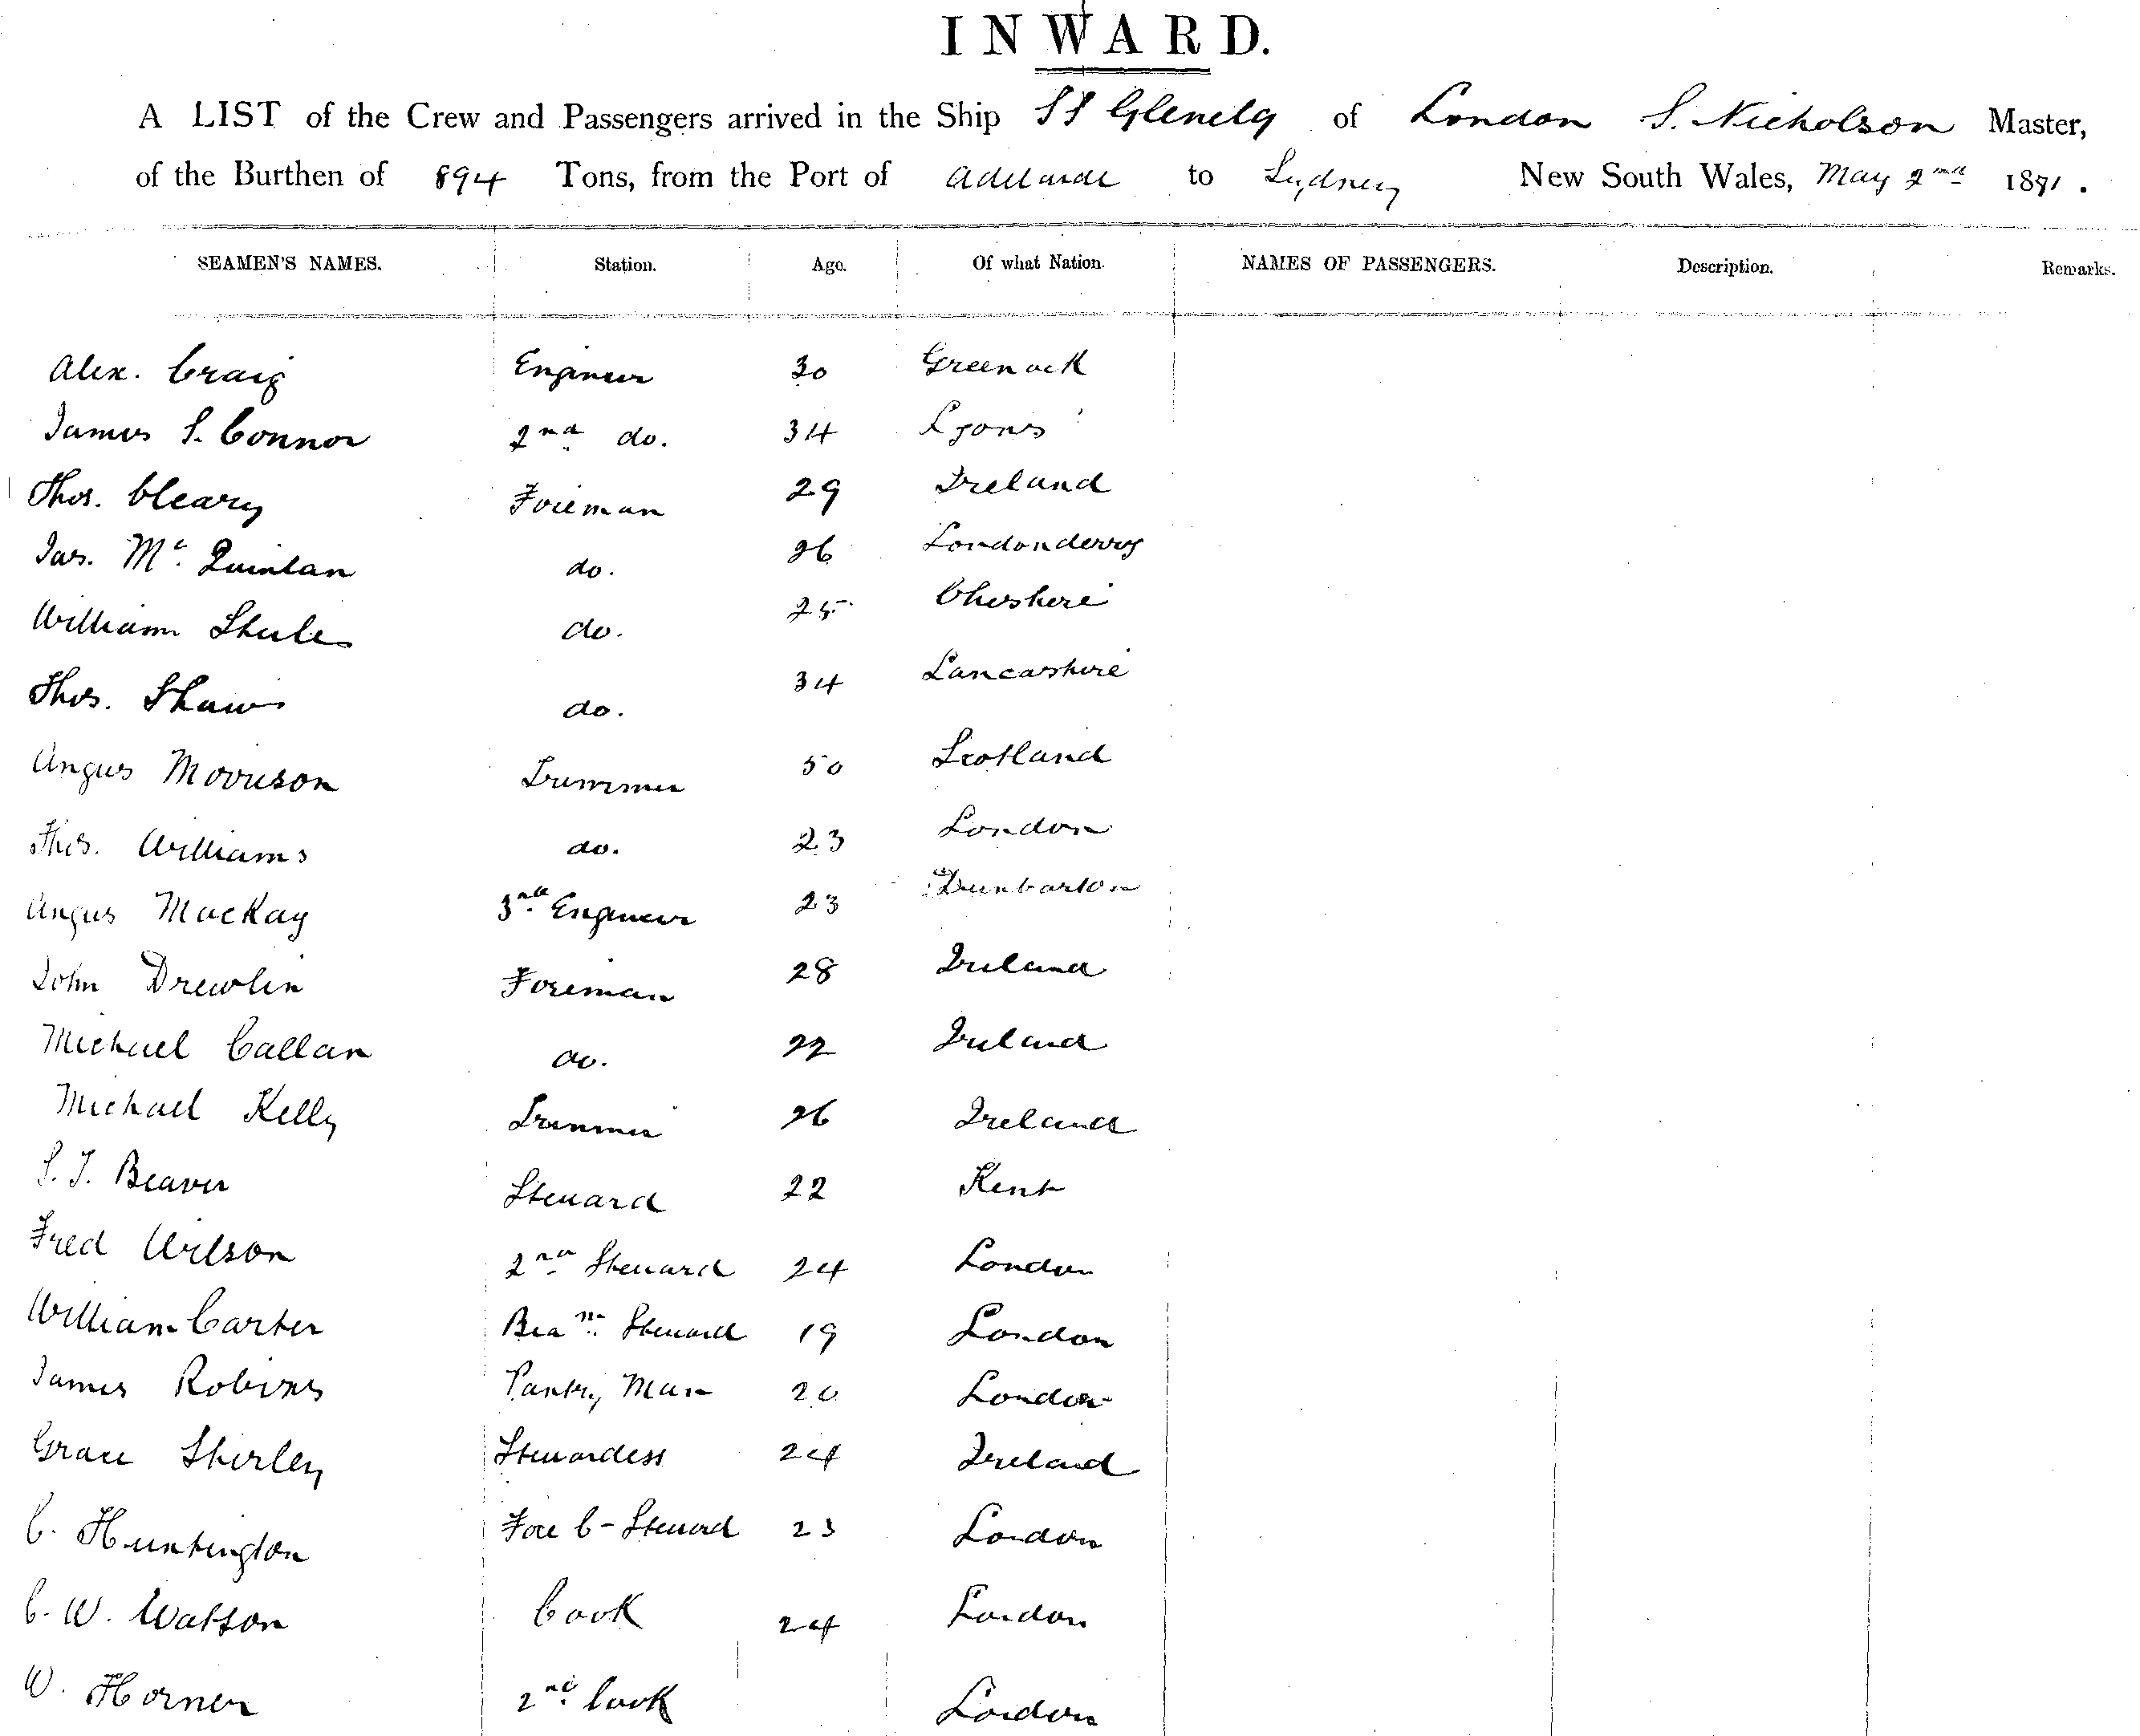 INWARD.
A LIST of the Crew and Passengers arrived in the Ship SS Glenelg of London S. Nicholson Master,
of the Burthen of 894 Tons, from the Port of Adelaide to Sydney New South Wales, May 2nd 1891.
SEAMEN'S NAMES. Station. Age. Of what Nation. NAMES OF PASSENGERS. Description. Remarks.
Alex. Craig Engineer 30 Greenock
James S. Connor 2nd do. 34 Lyons
Thos. Cleary Foreman 29 Ireland
Jas. Mc. Quinlan do. 26 Londonderry
William Steele do. 25 Cheshire
Thos. Shaw do. 34 Lancashire
Angus Morrison Trimmer 50 Scotland
Thos. Williams do. 23 London
Angus MacKay 3rd Engineer 23 Dunbarton
John Drewlin Foreman 28 Ireland
Michael Callan do. 22 Ireland
Michael Kelly Trimmer 26 Ireland
S. J. Beaver Steward 22 Kent
Fred Wilson 2nd Steward 24 London
William Carter Steward 19 London
James Robins Pantry Man 20 London
Grace Shirley Stewardess 24 Ireland
C. Huntington Fore C- Steward 23 London
C. W. Watson Cook 24 London
W. Horner 2nd Cook London